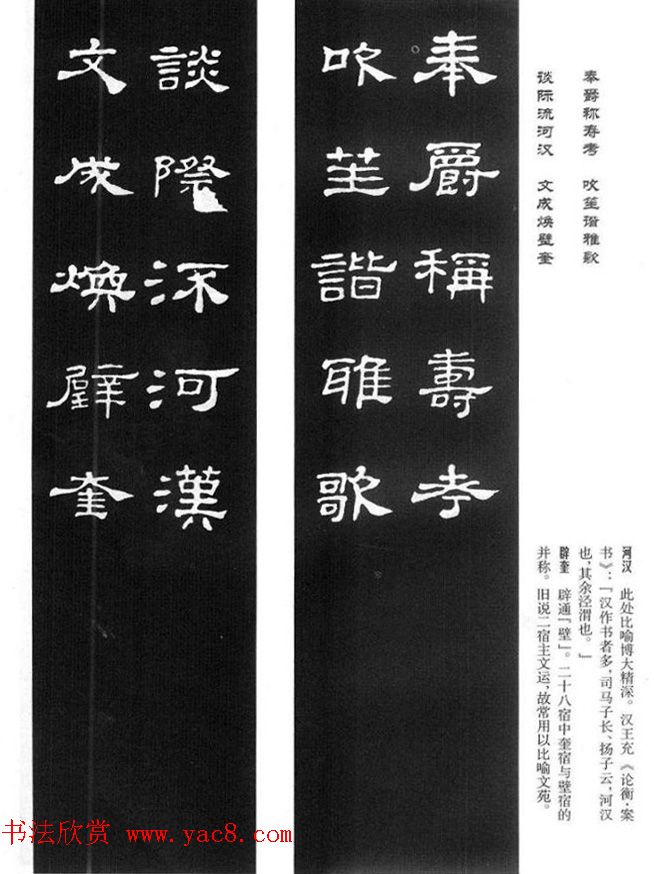 奉爵称寿考 吹笙谐雅歌
谈际流河汉 文成焕壁奎
河汉 此处比喻博大精深。汉王充《论衡·案
书》：「汉作书者多，司马子长、扬子云，河汉
也，其余泾渭也。」
辟奎 辟通「壁」。二十八宿中奎宿与壁宿的
并称。旧说二宿主文运，故常用以比喻文苑。
奉爵稱壽考
吹笙諧雅歌
談際流河漢
文成煥辟奎
书法欣赏 www.yac8.com